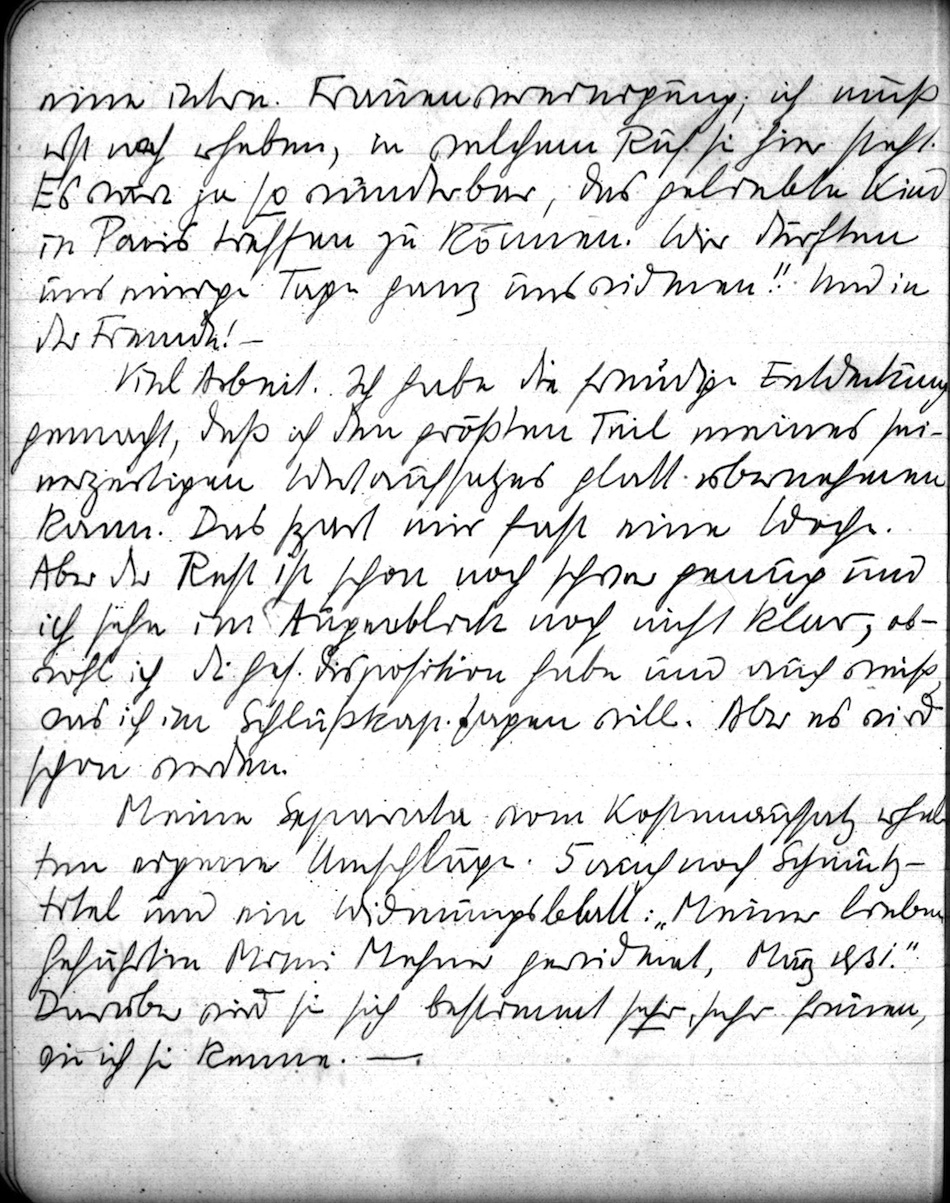 eine intern. Frauenvereinigung; ich muß
erst noch erheben, in welchem Ruf sie hier steht.
Es wäre ja so wunderbar, das geliebte Kind
in Paris treffen zu können. Wir dürften
uns einige Tage ganz uns widmen!! Und in
der Fremde! —
Viel Arbeit. Ich habe die freudige Entdeckung
gemacht, daß ich den größten Teil meines sei-
nerzeitigen Wertaufsatzes glatt übernehmen
kann. Das spart mir fast eine Woche.
Aber der Rest ist schon noch schwer genug und
ich sehe im Augenblick noch nicht klar, ob-
wohl ich die ges. Disposition habe und auch weiß,
was ich im Schlußkap. sagen will. Aber es wird
schon werden.
Meine Separata vom Kostenaufsatz erhal-
ten eigene Umschläge. 5 auch noch Schmutz-
titel und ein Widmungsblatt: „Meiner lieben
Gefährtin Mimi gewidmet, März 1931."
Darüber wird sie sich bestimmt sehr, sehr freuen,
wie ich sie kenne. —.